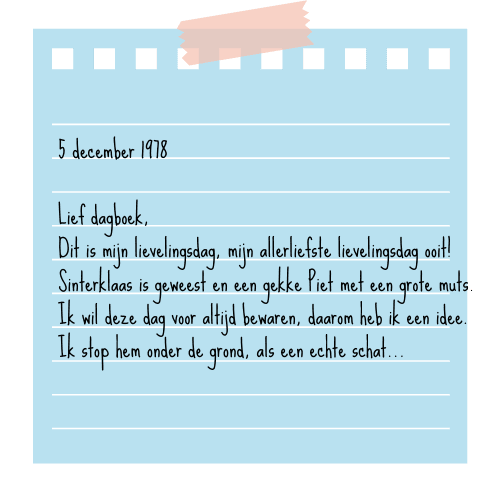 5 december 1978
Lief dagboek,
Dit is mijn lievelingsdag, mijn allerliefste lievelingsdag ooit!
Sinterklaas is geweest en een gekke Piet met een grote muts.
Ik wil deze dag voor altijd bewaren, daarom heb ik een idee.
Ik stop hem onder de grond, als een echte schat...